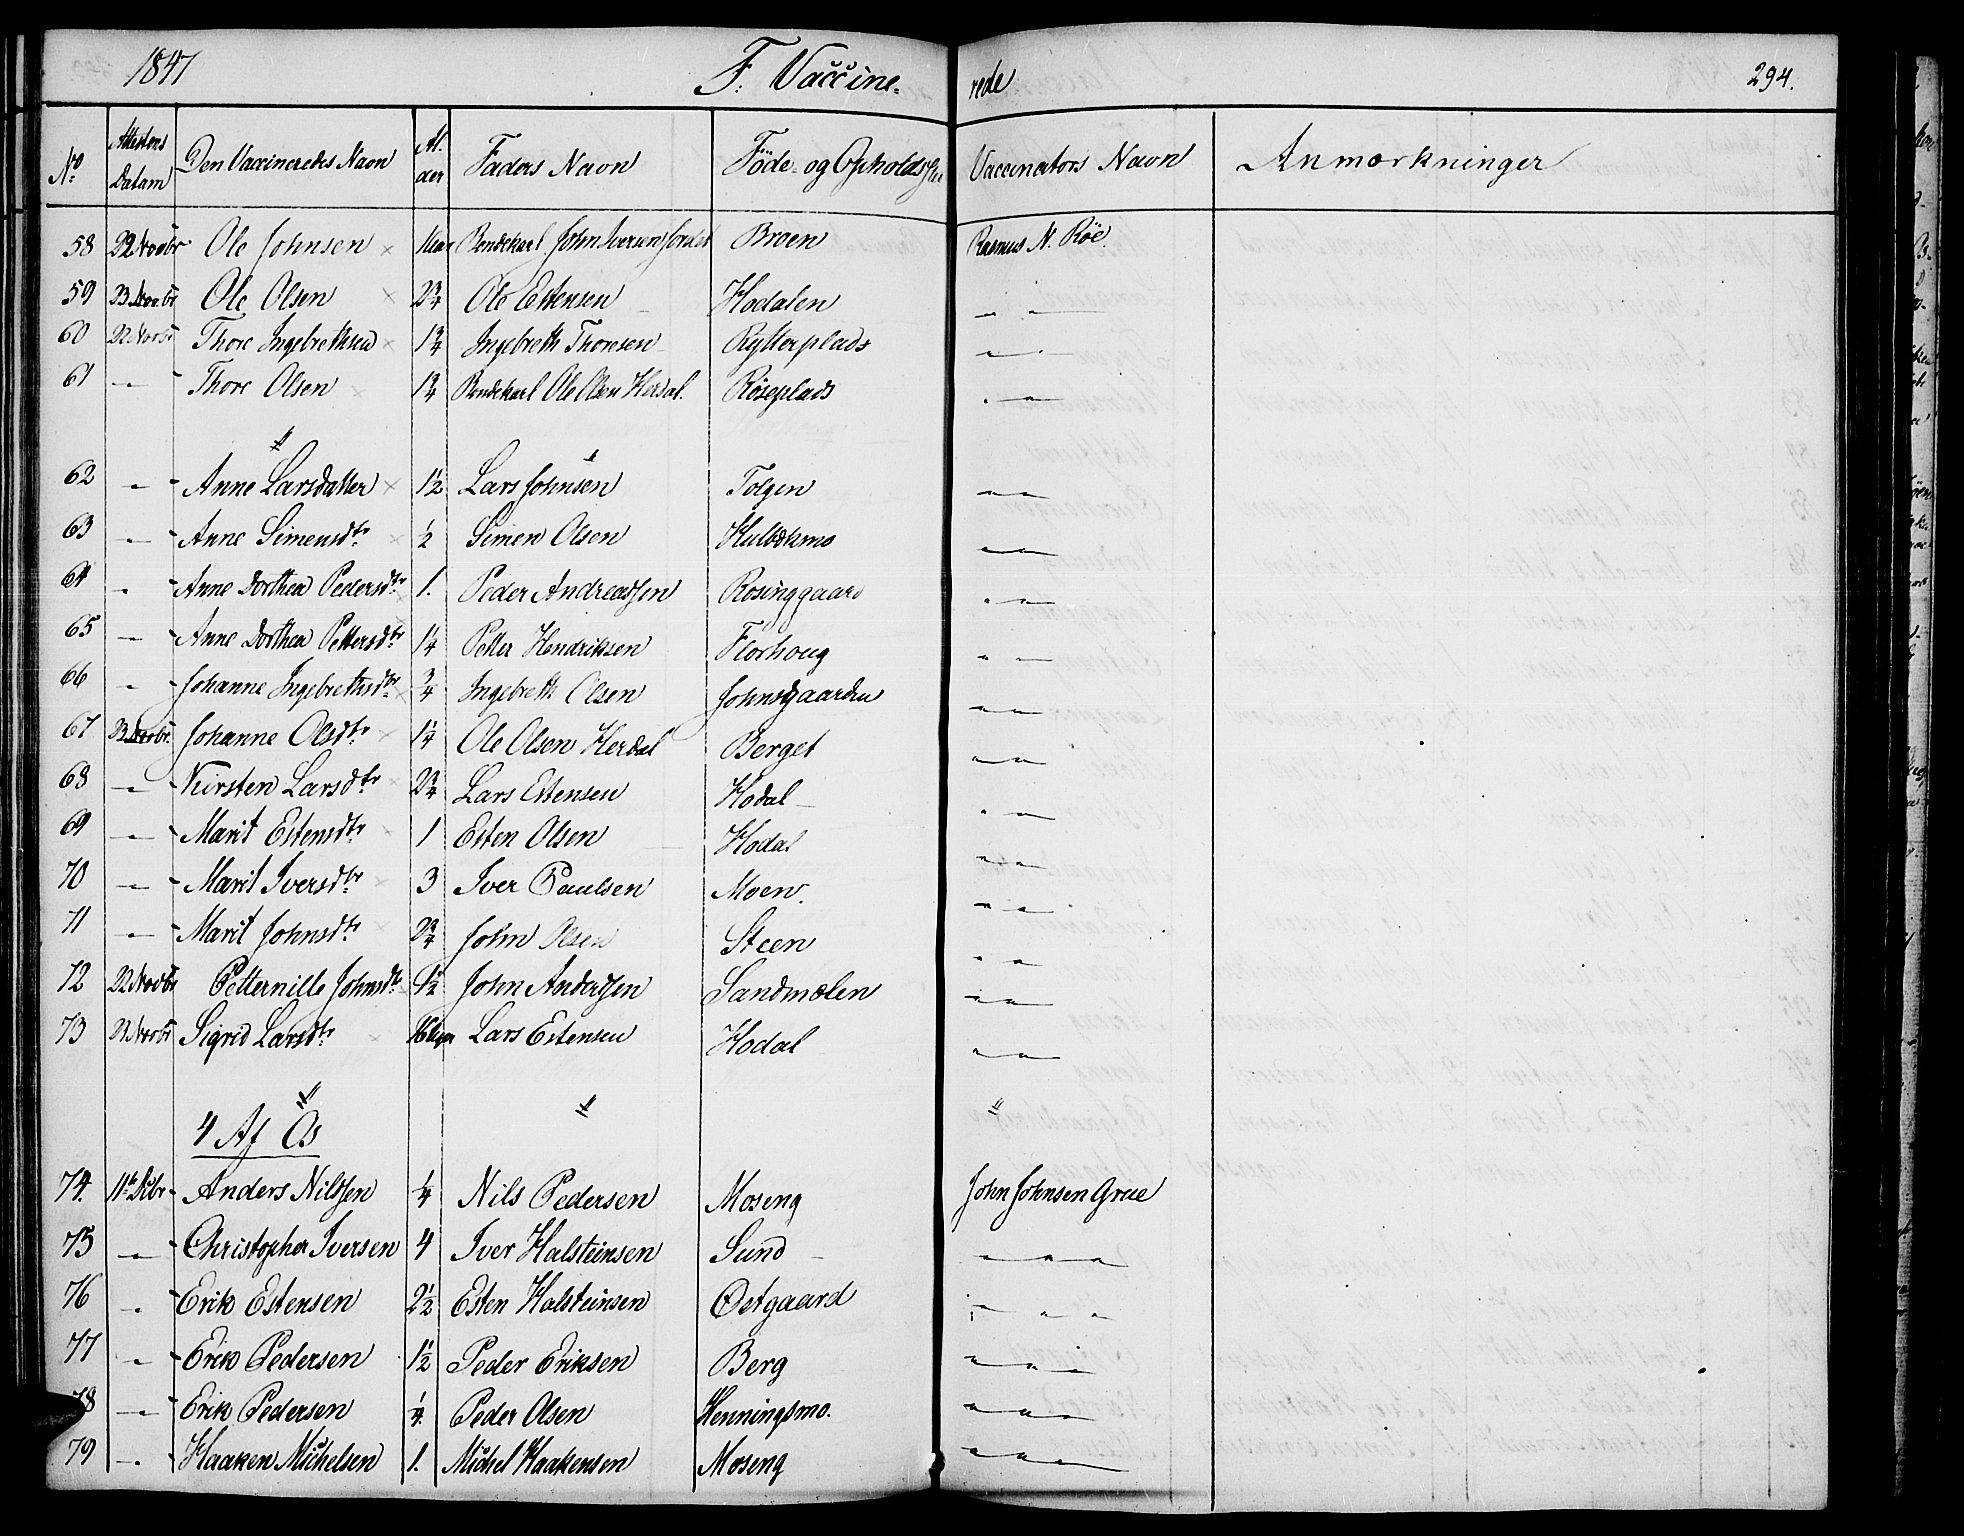 1847 F. Vaccine- rede 294.
No Attestens Datum Den Vaccineredes Navn Alder Faders Navn Föde- og Opholds Vaccinators Navn Anmærkninger
58 22 Novbr Ole Johnsen × 1 Aar John Iversen Broen Rasmus N. Röe.
59 23 Novbr Ole Olsen × 2 3/4 Ole Estensen Hodalen " "
60 22 Novbr Thore Ingebrethsen × 1 3/4 Ingebreth Thoresen Rytterplads " "
61 " Thore Olsen × 1 3/4 Ole Olsen Herdal. Röseplads " "
"
62 " Anne Larsdatter × 1 1/2 Lars Johnsen Tolgen " "
63 " Anne Simensdtr × 1/2 Simen Olsen " "
64 " Anne Dorthea Pedersdtr × 1. Peder Andreassen Rosinggaard " "
65 " Anne Dorthea Pettersdtr 1 1/4 Petter Hendriksen Florhoug " "
66 " Johanne Ingebrethsdtr × 3/4 Ingebreth Olsen Johnsgaarden " "
67 23 Novbr. Johanne Olsdtr × 1 1/4 Ole Olsen Herdal Berget " "
68 " Kirsten Larsdtr × 2 3/4 Lars Estensen Hodal " "
69 " Marit Estensdtr × 1 Esten Olsen Hodal " "
70 " Marit Iversdtr × 3 Iver Paulsen Moen. " "
71 " Marit Johnsdtr × 2 3/4 John Olsen Steen " "
72 22 Novbr Petternille Johnsdtr 1 1/2 John Andersen Sandmælen " "
73 23 Novbr Sigrid Larsdtr × Lars Estensen Hodal " "
" " "
4 Af Os
74. 11te Dcbr Anders Nilssen 1/4 Nils Pedersen Moseng John Johnsen Grue
75 " Christopher Iversen 4 Iver Halsteinsen Sund " " "
76 " Erik Estensen 2 1/2 Esten Halsteinsen Östgaard " " "
77 " Erik Pedersen 1 1/2 Peder Eriksen Berg " " "
78 " Erik Pedersen 1/4 Peder Olsen Henningsmo. " " "
79 " Haaken Michelsen 1. Michel Haakensen Moseng " " "